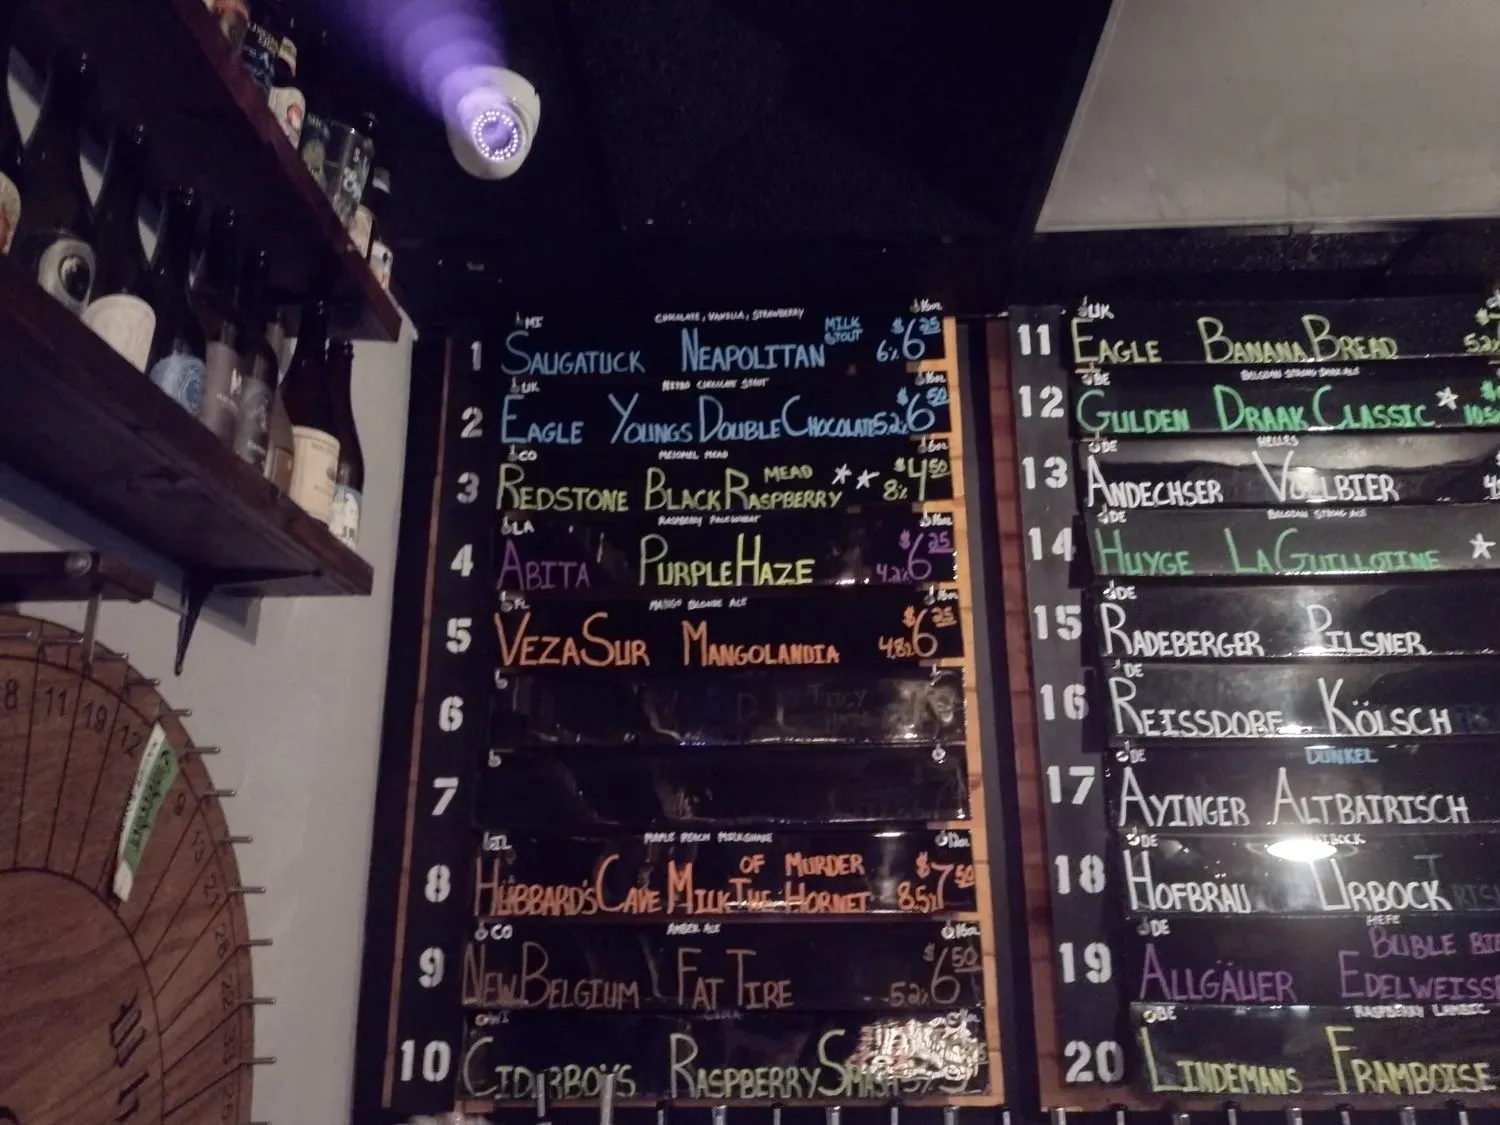 MI CHOCOLATE, VANILLA, STRAWBERRY 16oz
1 SAUGATUCK NEAPOLITAN MILK STOUT 6% $6.25
UK NITRO CHOCOLATE STOUT 16oz
2 EAGLE YOUNGS DOUBLE CHOCOLATE 5.2% $6.50
CO MELOMEL MEAD 6oz
3 REDSTONE BLACK RASPBERRY MEAD ** 8% $4.50
LA RASPBERRY PALE WHEAT 16oz
4 ABITA PURPLE HAZE 4.2% $6.25
FL MANGO BLONDE ALE 16oz
5 VEZA SUR MANGOLANDIA 4.8% $6.25
6
7
IL MAPLE PEACH MILKSHAKE 12oz
8 HUBBARD'S CAVE MILK OF MURDER THE HORNET 8.5% $7.50
CO AMBER ALE 16oz
9 NEW BELGIUM FAT TIRE 5.2% $6.50
WI
10 CIDERBOYS RASPBERRY SMASH
UK
11 EAGLE BANANA BREAD
BE BELGIAN STRONG DARK ALE
12 GULDEN DRAAK CLASSIC *
DE HELLES
13 ANDECHSER VOLLBIER
DE BELGIAN STRONG ALE
14 HUYGE LA GUILLOTINE *
DE
15 RADEBERGER PILSNER
DE
16 REISSDORF KÖLSCH
DE DUNKEL
17 AYINGER ALTBAIRISCH
DE
18 HOFBRAU URBOCK
DE HEFE
19 ALLGÄUER BÜBLE EDELWEISS
BE RASPBERRY LAMBIC
20 LINDEMANS FRAMBOISE
8 11 19 12